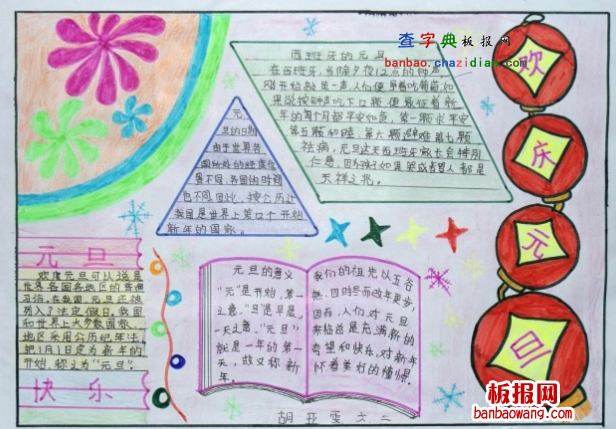 查字典板报网
banbao.chazidian.com
西班牙的元旦
在西班牙，当除夕夜12点的钟声
刚开始敲第一声，人们便争着吃葡萄，如
果能按钟声吃下12颗，便象征着新
年的每个月都平安如意。第一颗求平安
第五颗和睦，第六颗避难第七颗
祛病，元旦这天西班牙家长会特别
仁慈，因为孩子如果哭或者骂人都是
不祥之兆。
元
旦的日期
由于世界各
国所处的经度位
置不同，各国的时间
也不同，因此，按公历计
我国是世界上第12个开始
新年的国家。
欢
庆
元
旦
元旦
欢度元旦可以说是
世界各国各地区的普遍
习俗，在我国，元旦还被
列入了法定假日，我国
和世界上大多数国家、
地区采用公历纪年法，
把1月1日定为新年的
开始，称之为“元旦”。
快乐
元旦的意义
“元”是开始，第一
之意，“旦”是早晨，
一天之意，“元旦”
就是一年的第一
天，故又称新
年。
我们的祖先以五谷
因而，人们对元旦
来临总是充满新的
希望和快乐，对新年
怀着美好的憧憬。
胡亚雯 六二
板报网
banbaowang.com